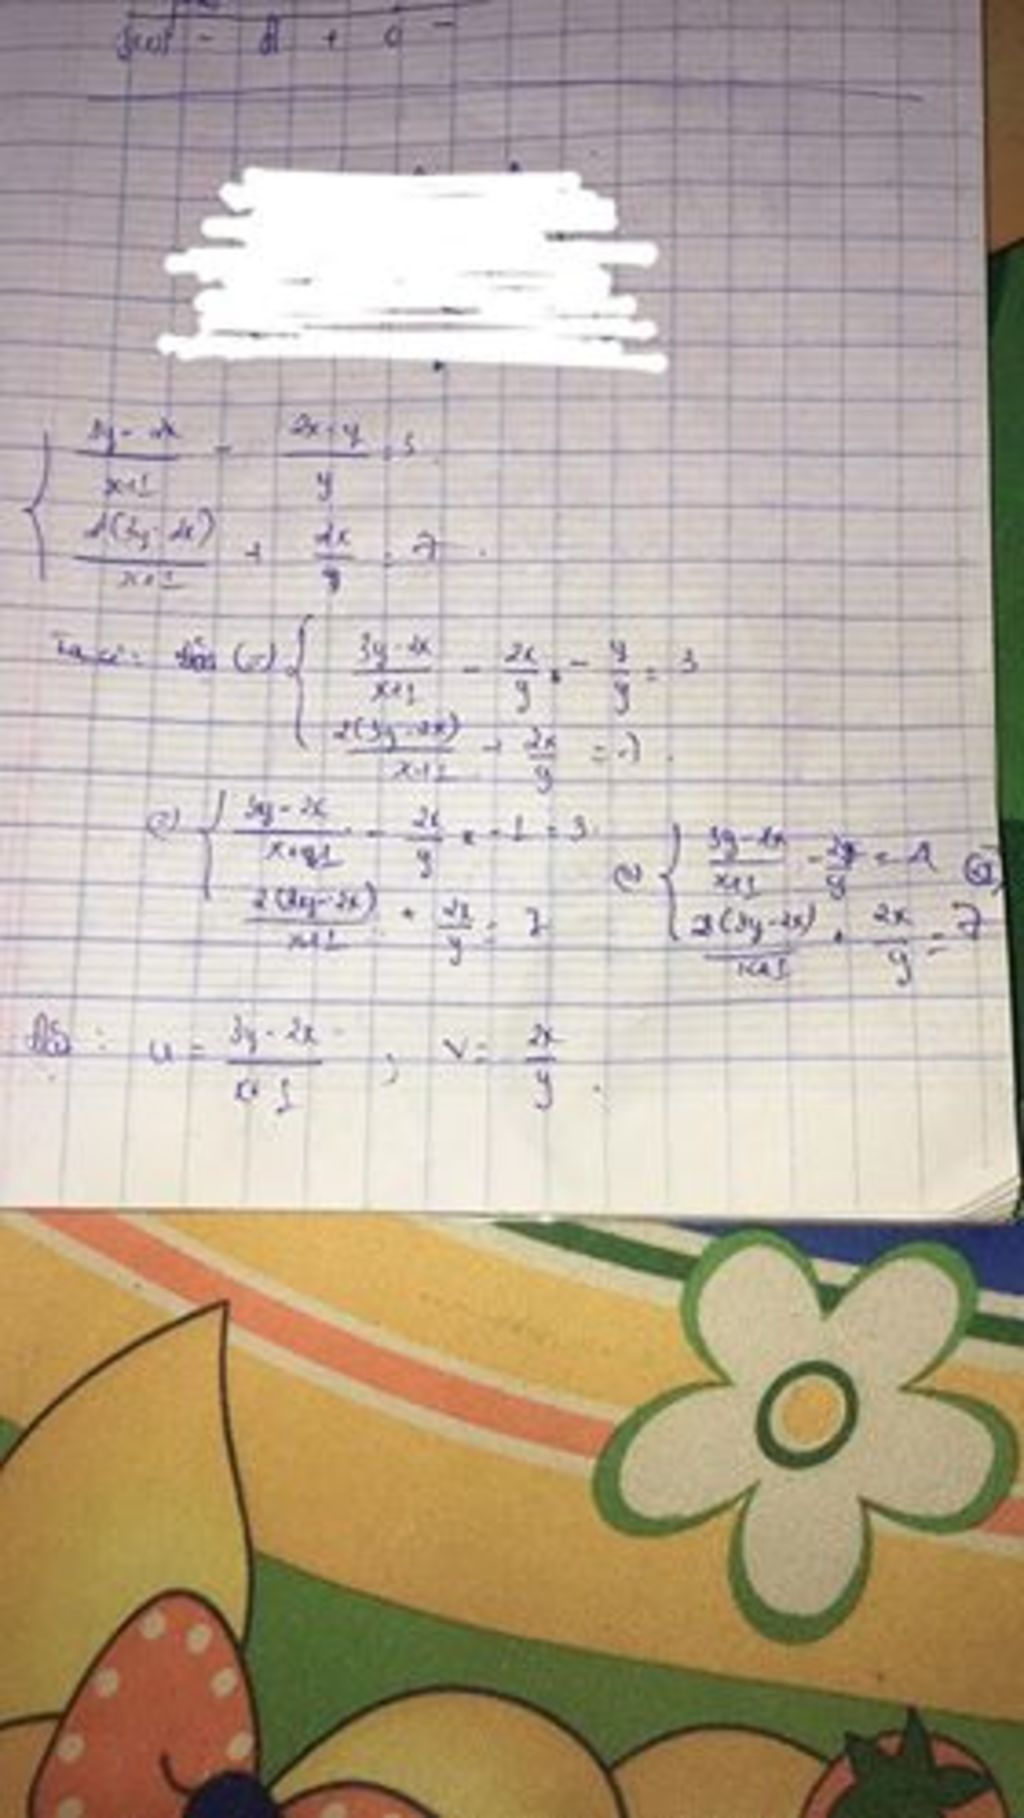 { (3y - 2x)/(x+1) - (2x+y)/y = 3
2(3y-2x)/(x+1) + 2x/y = 7.
(=) { (3y-2x)/(x+1) - 2x/y - y/y = 3
2(3y-2x)/(x+1) + 2x/y = 7.
(=) { (3y-2x)/(x+1) - 2x/y - 1 = 3
2(3y-2x)/(x+1) + 2x/y = 7
(=) { (3y-2x)/(x+1) - 2x/y = 4
2(3y-2x)/(x+1) + 2x/y = 7
u = (3y-2x)/(x+1) ; v = 2x/y.